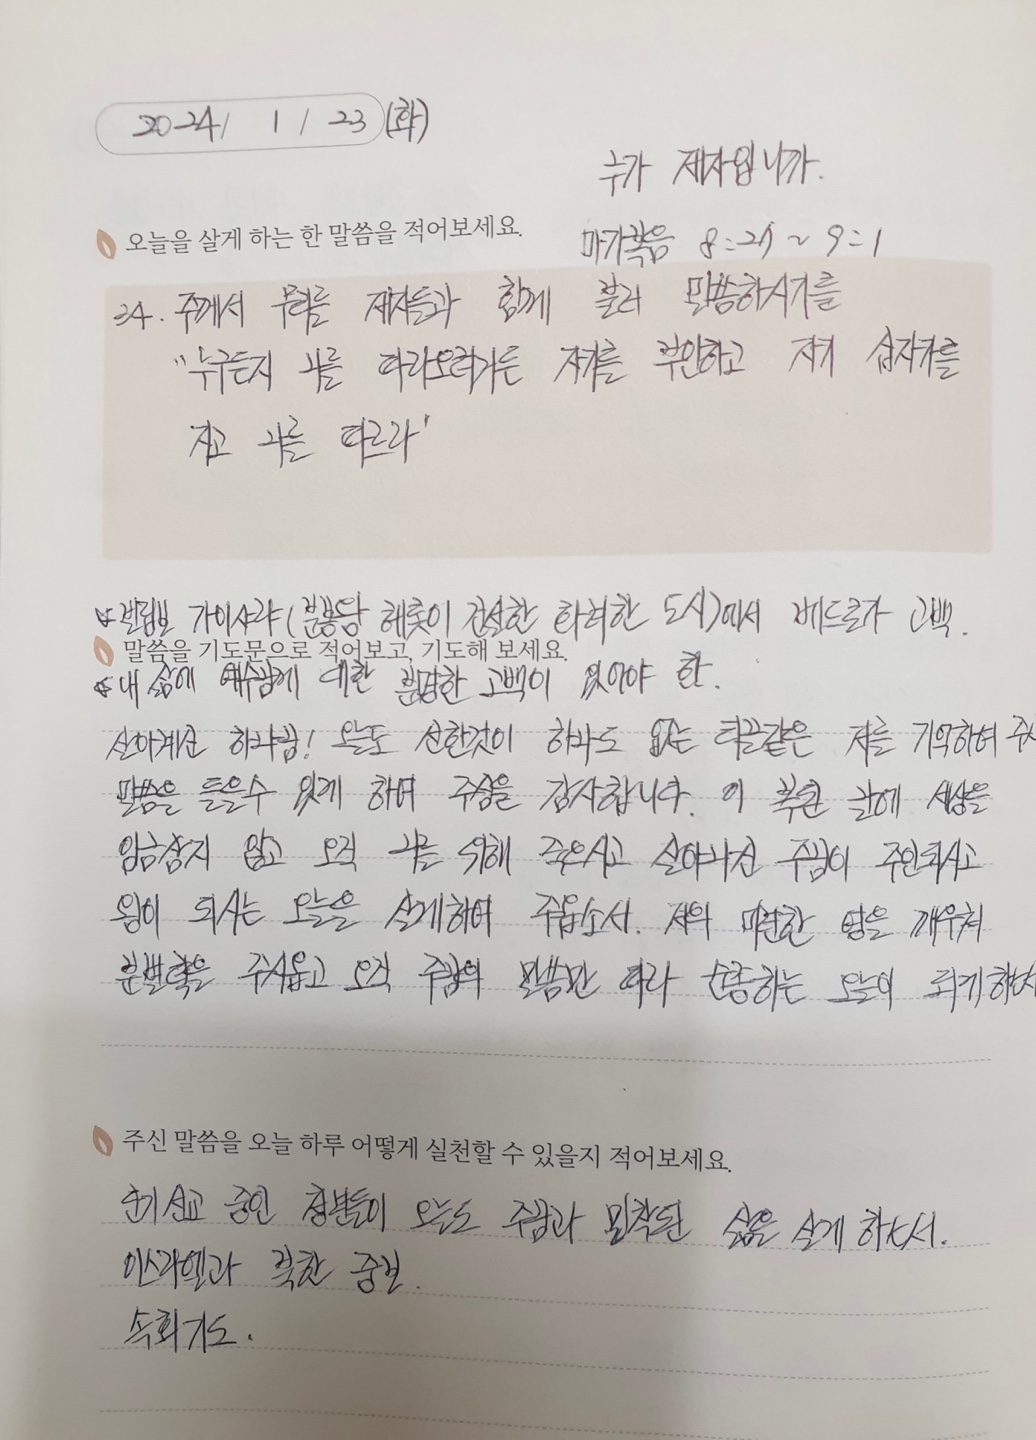 2024 / 1 / 23 (화)
누가 제자입니까.
오늘을 살게 하는 한 말씀을 적어보세요.
마가복음 8:27 ~ 9:1
34. 주께서 무리를 제자들과 함께 불러 말씀하시기를
"누구든지 나를 따라오려거든 자기를 부인하고 자기 십자가를
지고 나를 따르라"
빌립보 가이사랴(분봉왕 헤롯이 건설한 화려한 도시)에서 베드로가 고백.
말씀을 기도문으로 적어보고, 기도해 보세요.
내 삶에 예수님에 대한 분명한 고백이 있어야 함.
살아계신 하나님! 오늘도 선한것이 하나도 없는 티끌같은 저를 기억하여
말씀을 들을수 있게 하여 주심을 감사합니다. 이 복된 날에 세상을
임금삼지 않고 오직 나를 위해 죽으시고 살아나신 주님이 주인되시고
왕이 되시는 오늘을 살게하여 주옵소서. 저의 미련한 맘을 깨우쳐
분별력을 주시옵고 오직 주님의 말씀만 따라 순종하는 오늘이 되게
주신 말씀을 오늘 하루 어떻게 실천할 수 있을지 적어보세요.
선교 중인 청년들이 오늘도 주님과 밀착된 삶을 살게 하소서.
이스라엘과 북한 중보.
속회기도.